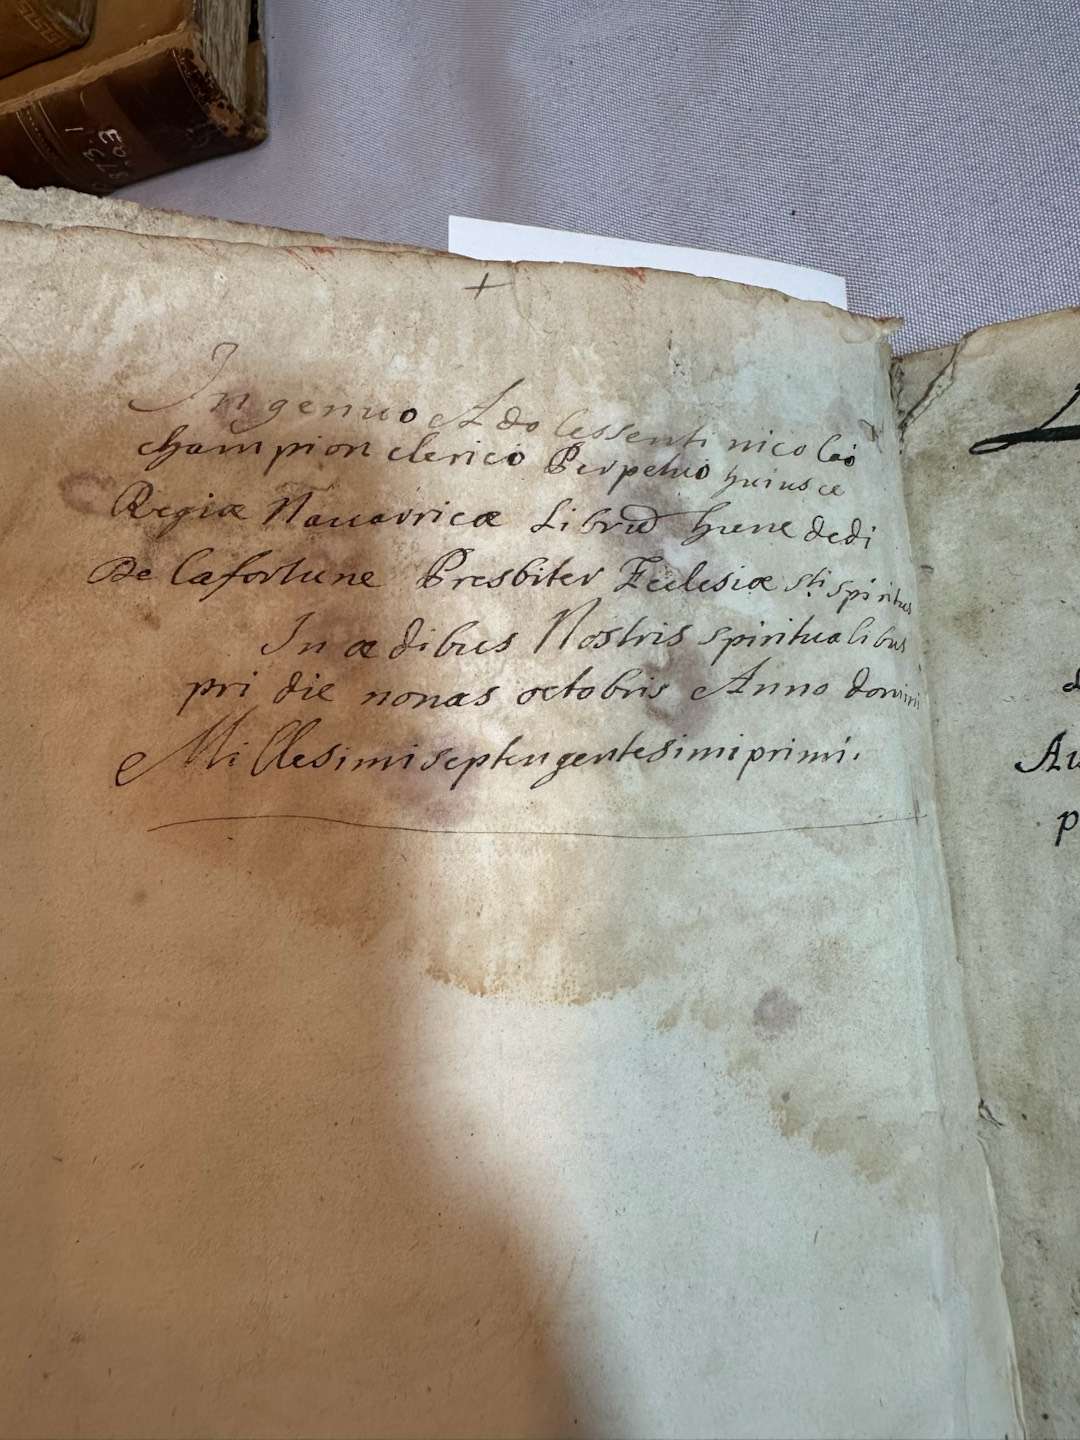 +
Ingenuo Adolessenti nicolao
champion clerico Perpetuo huiusce
Regiæ Nauarricæ Librū hunc dedi
De Lafortune Presbiter Ecclesiæ sti spiritus
In ædibus Nostris spiritualibus
pridie nonas octobris Anno domini
Millesimi septengentesimi primi.